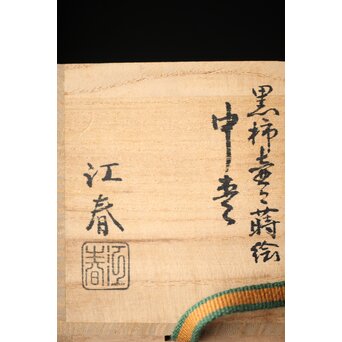 黒柿壷々蒔絵
中棗
江春
江春